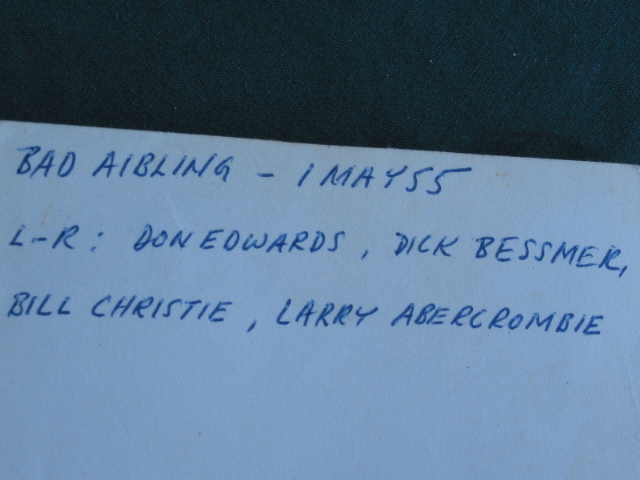 BAD AIBLING - 1 MAY 55
L-R: DON EDWARDS, DICK BESSMER,
BILL CHRISTIE, LARRY ABERCROMBIE